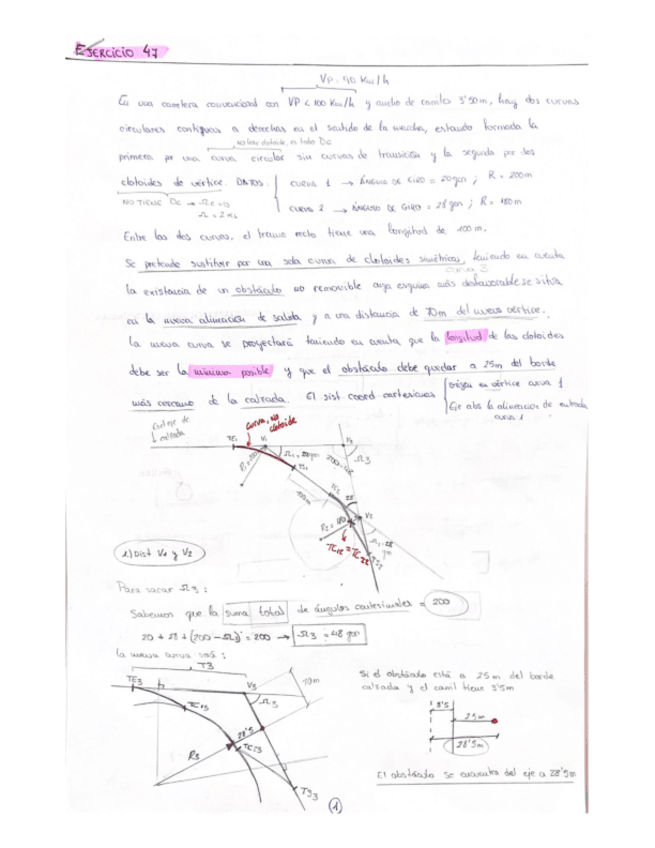 EJERCICIO 47
VP: 90 Km/h
En una carretera convencional con VP < 100 Km/h y ancho de carriles 3'50m, hay dos curvas
circulares contiguas a derechas en el sentido de la marcha, estando formada la
NO tiene clotoide, es todo Dc
primera por una curva circular sin curvas de transición y la segunda por dos
clotoides de vértice. DATOS: CURVA 1 → ÁNGULO DE GIRO = 20gon ; R = 200m
NO TIENE Dc → Ωc=0
CURVA 2 → ÁNGULO DE GIRO = 28gon ; R = 180m
Entre las dos curvas, el tramo recto tiene una longitud de 100m.
Se pretende sustituir por una sola curva de clotoides simétricas, teniendo en cuenta
curva 3
la existencia de un obstáculo no removible cuya esquina más desfavorable se sitúa
en la nueva alineación de salida y a una distancia de 70m del nuevo vértice.
La nueva curva se proyectará teniendo en cuenta que la longitud de las clotoides
debe ser la mínima posible y que el obstáculo debe quedar a 25m del borde
más cercano de la calzada. El sist coord cartesianas
Origen en vértice curva 1
Eje abs la alineación de entrada
curva 1
Curva, no
clotoide
TE1
V1
V3
Ω1=20gon
Ω3
TS1
100m
28
V2
R2=180
TC12 = TC22
TS2
1) Dist V1 y V2
Para sacar Ω3 :
Sabemos que la suma total de ángulos = 200
20 + 28 + (200 - Ω3) = 200 → Ω3 = 48 gon
La nueva curva será :
T3
TE3
V3
70m
Ω3
TC13
28'5
TC23
R3
TS3
Si el obstáculo está a 25m del borde
calzada y el carril tiene 3'5m
3'5
25m
28'5m
El obstáculo se encuentra del eje a 28'5m
1